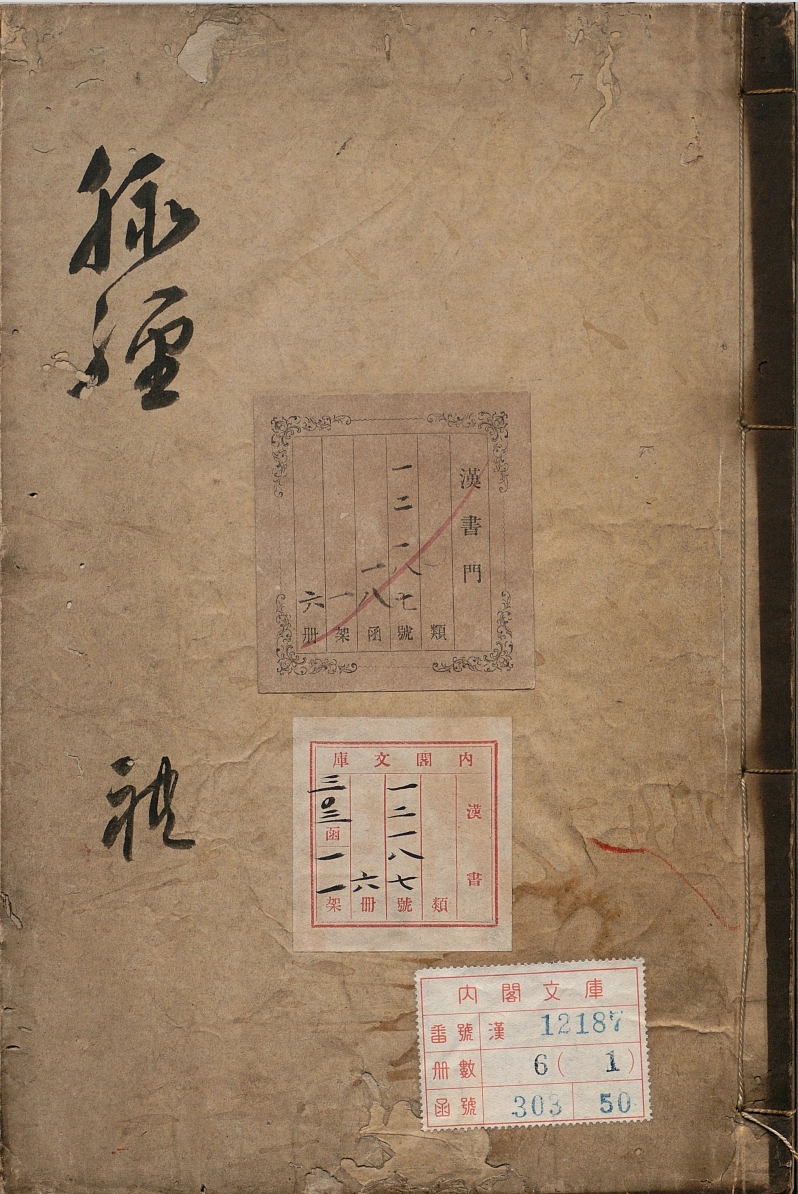 脉經
禮
漢書門
類
一二一八七號
一八函
一架
六冊
内閣文庫
漢書
類
一二一八七號
六冊
三〇三函
一一架
内閣文庫
番號 漢 12187
冊數 6( 1)
函號 303 50